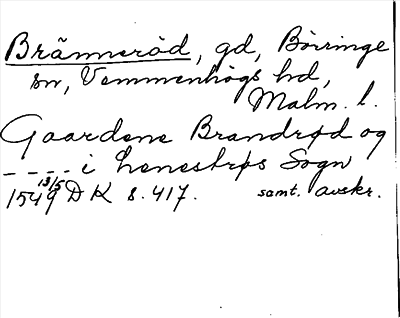 Bränneröd, gd, Börringe
sn, Vemmenhögs hd,
Malm. l.
Gaardene Brandrød og
- - - - i Lenestrøs Sogn
1549 13/5 DK s. 417. samt. avskr.